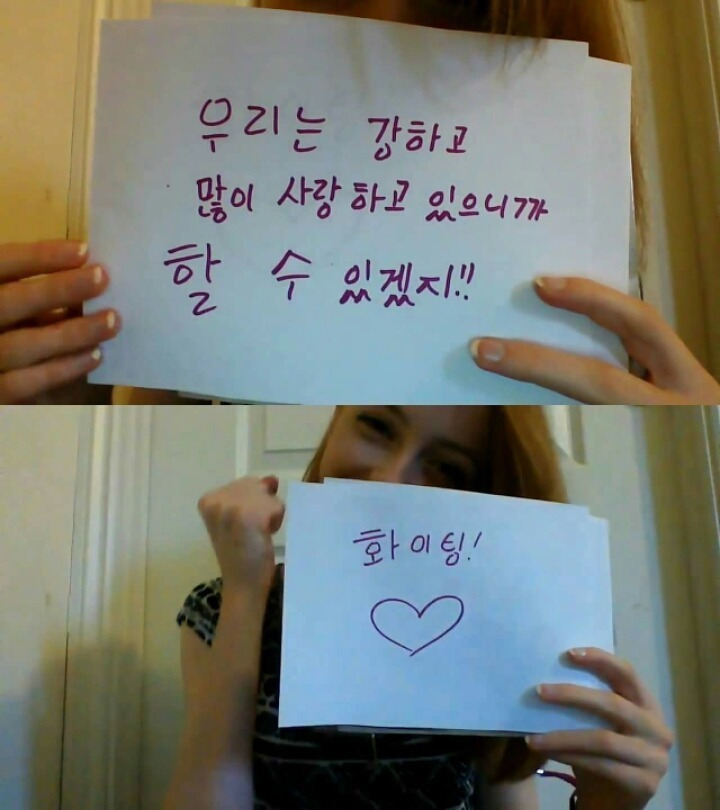 우리는 강하고
많이 사랑하고 있으니까
할 수 있겠지!!
화이팅!